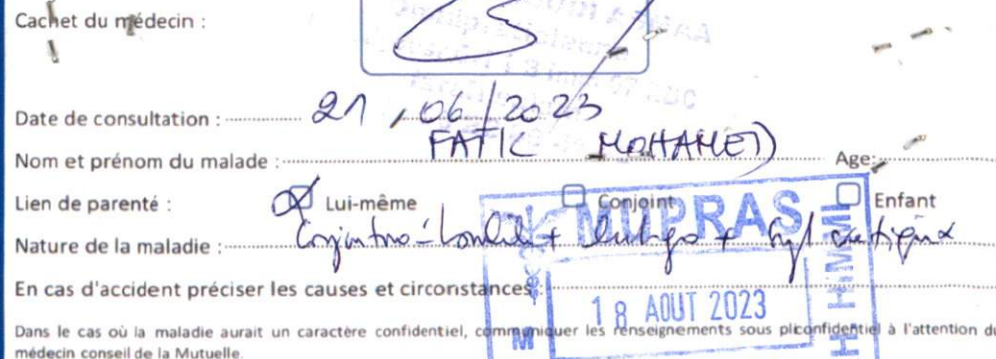 Cachet du médecin :
Date de consultation : 21/06/2023
Nom et prénom du malade : FATIC MOHAMED Age:
Lien de parenté : Lui-même Conjoint Enfant
MUPRAS
Nature de la maladie : + +
En cas d'accident préciser les causes et circonstances
18 AOUT 2023
Dans le cas où la maladie aurait un caractère confidentiel, communiquer les renseignements sous pli confidentiel à l'attention du
médecin conseil de la Mutuelle.